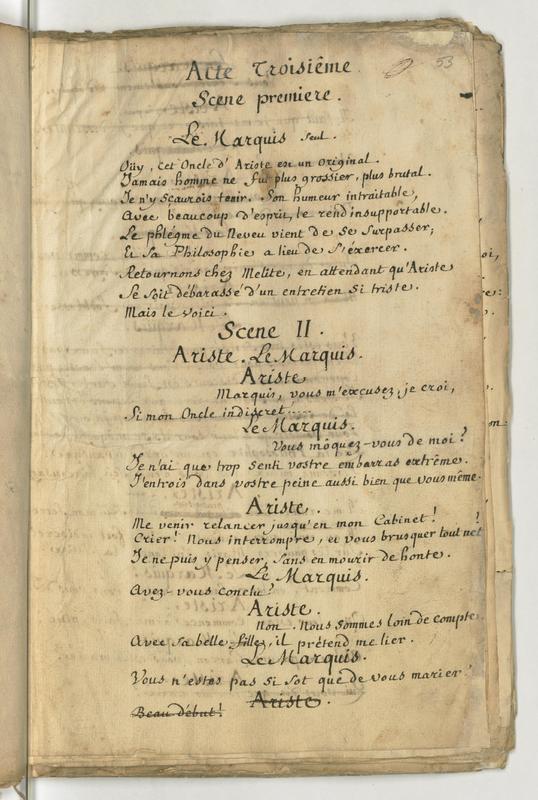 53
Acte Troisiême
Scene premiere.
Le Marquis seul.
Oüy, cet Oncle d'Ariste est un original.
Jamais homme ne fut plus grossier, plus brutal.
Je n'y sçaurois tenir. Son humeur intraitable,
Avec beaucoup d'esprit, le rend insupportable.
Le phlégme du Neveu vient de se surpasser;
Et sa Philosophie a lieu de s'éxercer.
Retournons chez Melite, en attendant qu'Ariste
Se soit débarassé d'un entretien si triste.
Mais le voici.
Scene II.
Ariste. Le Marquis.
Ariste
Marquis, vous m'excusez, je croi,
Si mon Oncle indiscret.....
Le Marquis.
Vous môquez-vous de moi?
Je n'ai que trop senti vostre embarras extrême.
J'entrois dans vostre peine aussi bien que vous même.
Ariste.
Me venir relancer jusqu'en mon Cabinet!
Crier! Nous interrompre, et vous brusquer tout net!
Je ne puis y penser, sans en mourir de honte.
Le Marquis.
Avez-vous conclu?
Ariste.
Non. Nous sommes loin de compte.
Avec sa belle-fille, il prétend me lier.
Le Marquis.
Vous n'estes pas si sot que de vous marier?
Ariste.
Beau début!